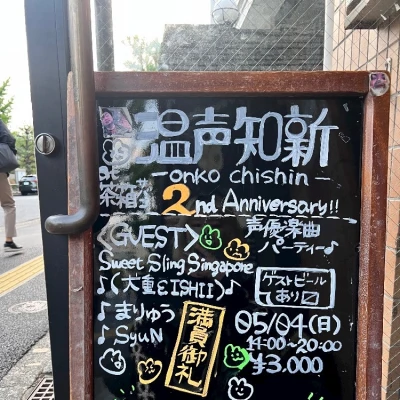 温声知新
-onko chishin-
茶箱
2nd Anniversary!!
<GUEST>
声優楽曲
パーティー♪
Sweet Sling Singapore
♪(大重とISHII)♪
ゲストビール
あり
♪まりゅう
♪SyuN
満員御礼
05/04(日)
14:00~20:00
¥3.000